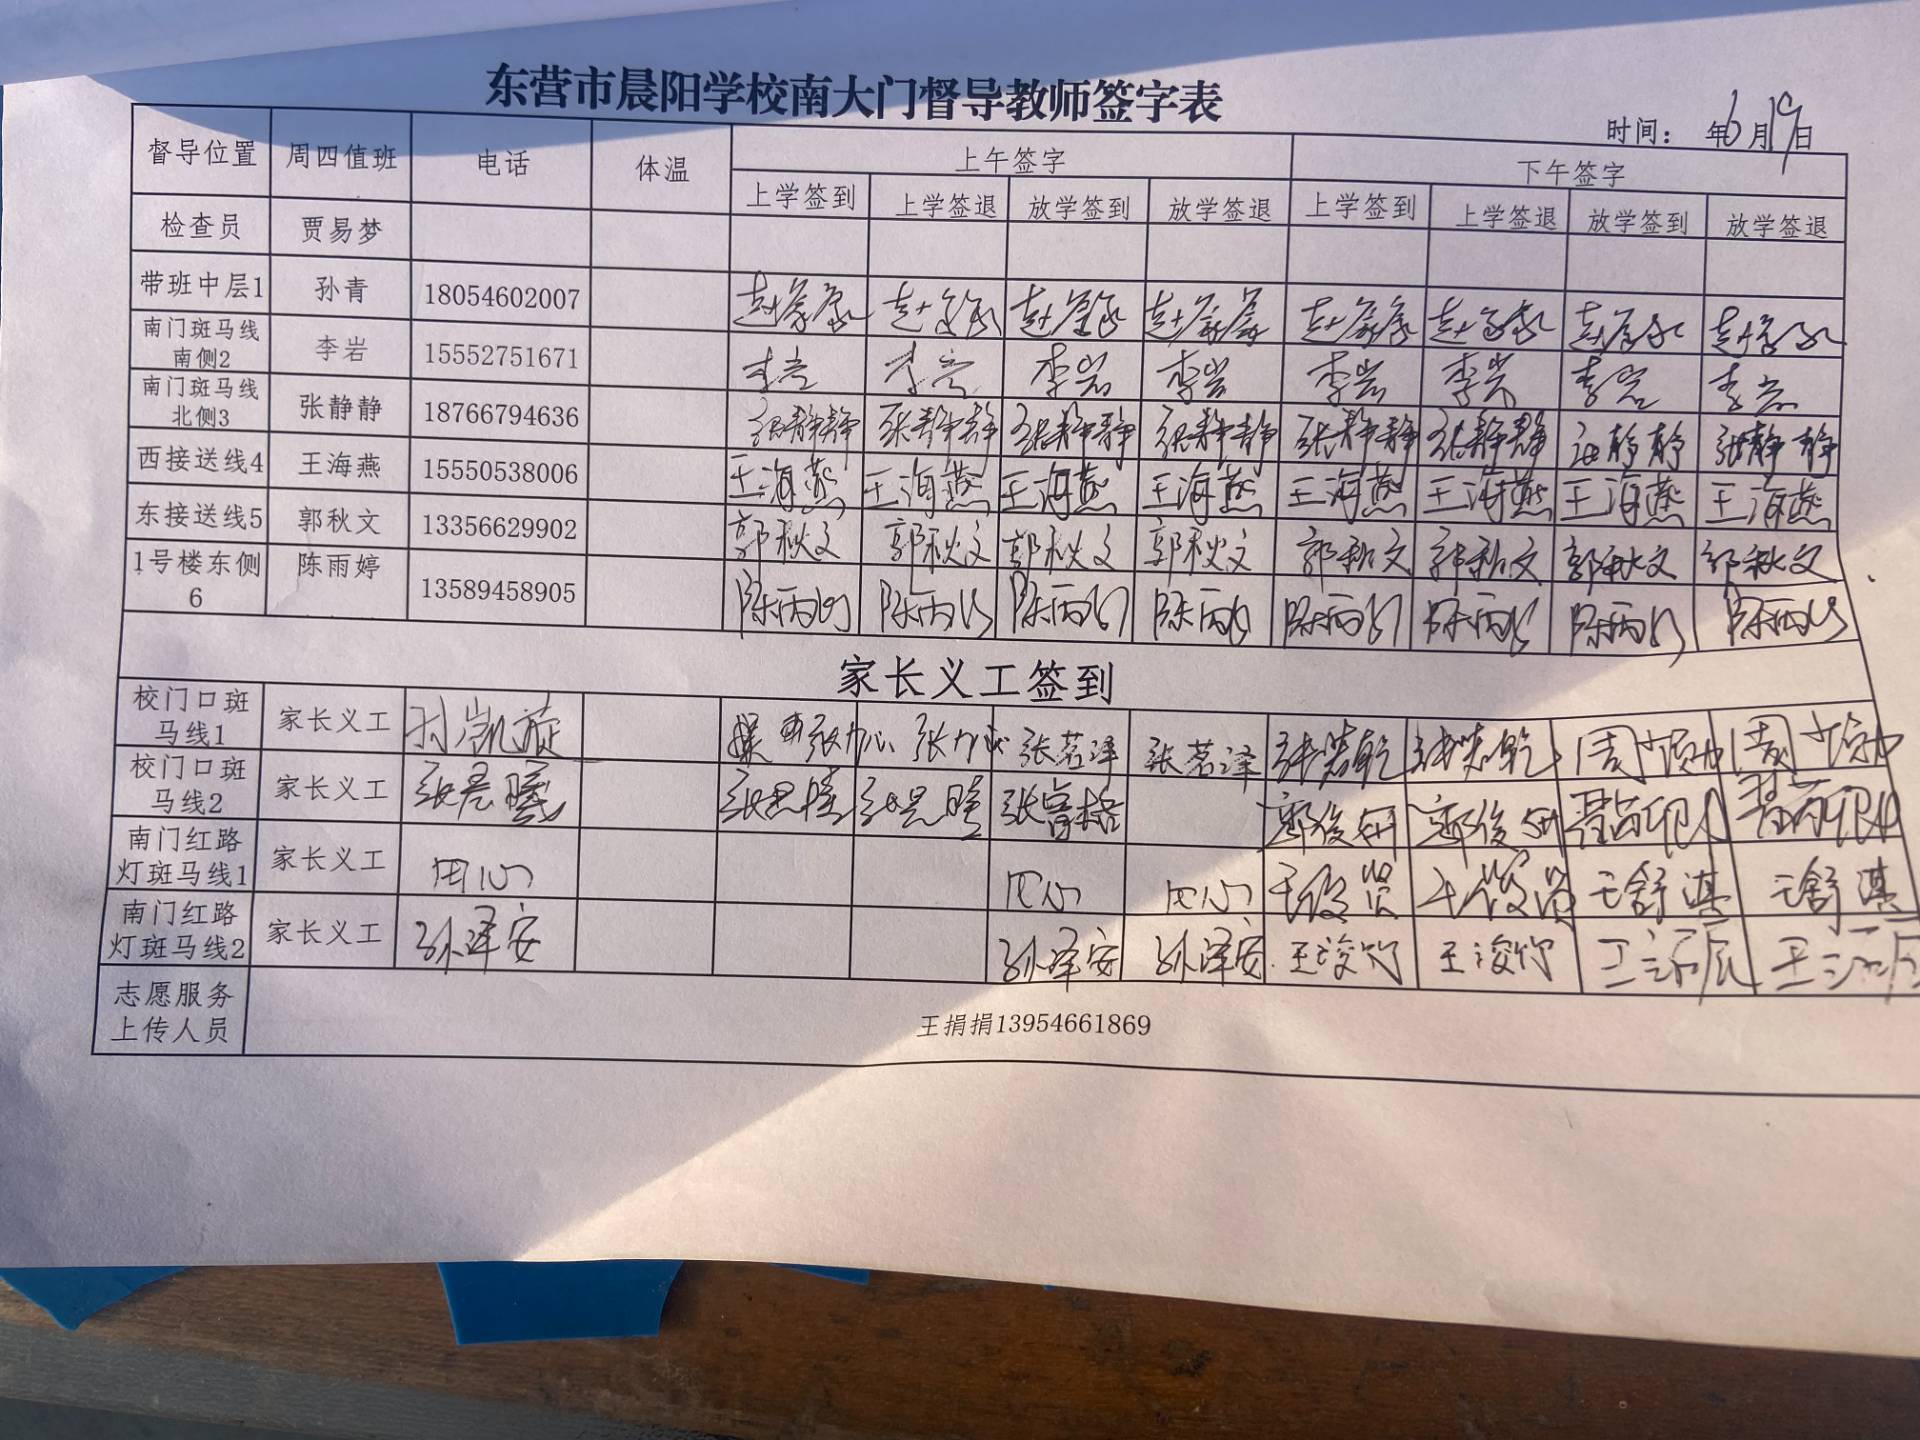 东营市晨阳学校南大门督导教师签字表
时间： 年6月19日
督导位置 周四值班 电话 体温 上午签字 下午签字
上学签到 上学签退 放学签到 放学签退 上学签到 上学签退 放学签到 放学签退
检查员 贾易梦
带班中层1 孙青 18054602007
南门斑马线
南侧2 李岩 15552751671 李岩 李岩 李岩 李岩 李岩 李岩 李岩 李岩
南门斑马线
北侧3 张静静 18766794636 张静静 张静静 张静静 张静静 张静静 张静静 张静静 张静静
西接送线4 王海燕 15550538006 王海燕 王海燕 王海燕 王海燕 王海燕 王海燕 王海燕 王海燕
东接送线5 郭秋文 13356629902 郭秋文 郭秋文 郭秋文 郭秋文 郭秋文 郭秋文 郭秋文 郭秋文
1号楼东侧
6 陈雨婷 13589458905 陈雨 陈雨 陈雨 陈雨 陈雨 陈雨 陈雨 陈雨
家长义工签到
校门口斑
马线1 家长义工 孙凯旋 张茗泽 张茗泽
校门口斑
马线2 家长义工 张景曦
南门红路
灯斑马线1 家长义工 田心 田心 田心 王舒淇 王舒淇
南门红路
灯斑马线2 家长义工 孙泽安 孙泽安 孙泽安
志愿服务
上传人员 王捐捐13954661869